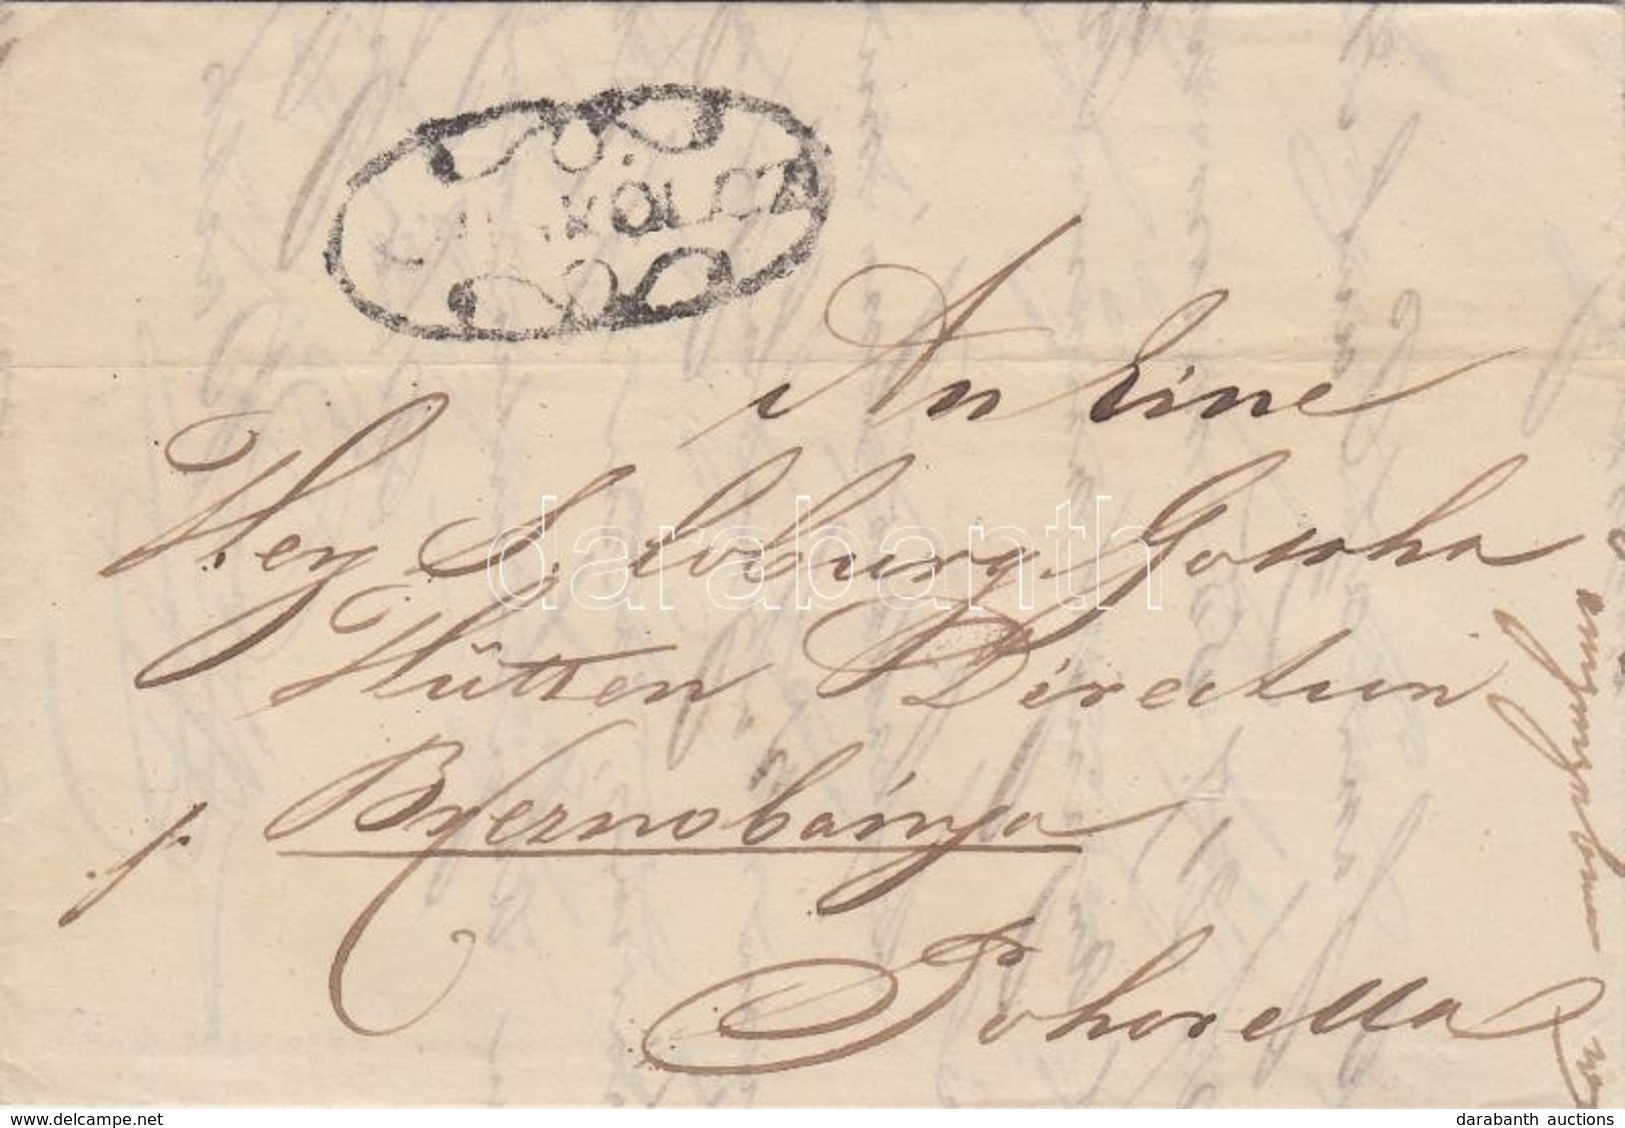 An Eine
Herz. S. Coburg Gotha
Hütten Direction
p. Brjeznobánya
Pohorella
darabanth
www.delcampe.net
darabanth auctions